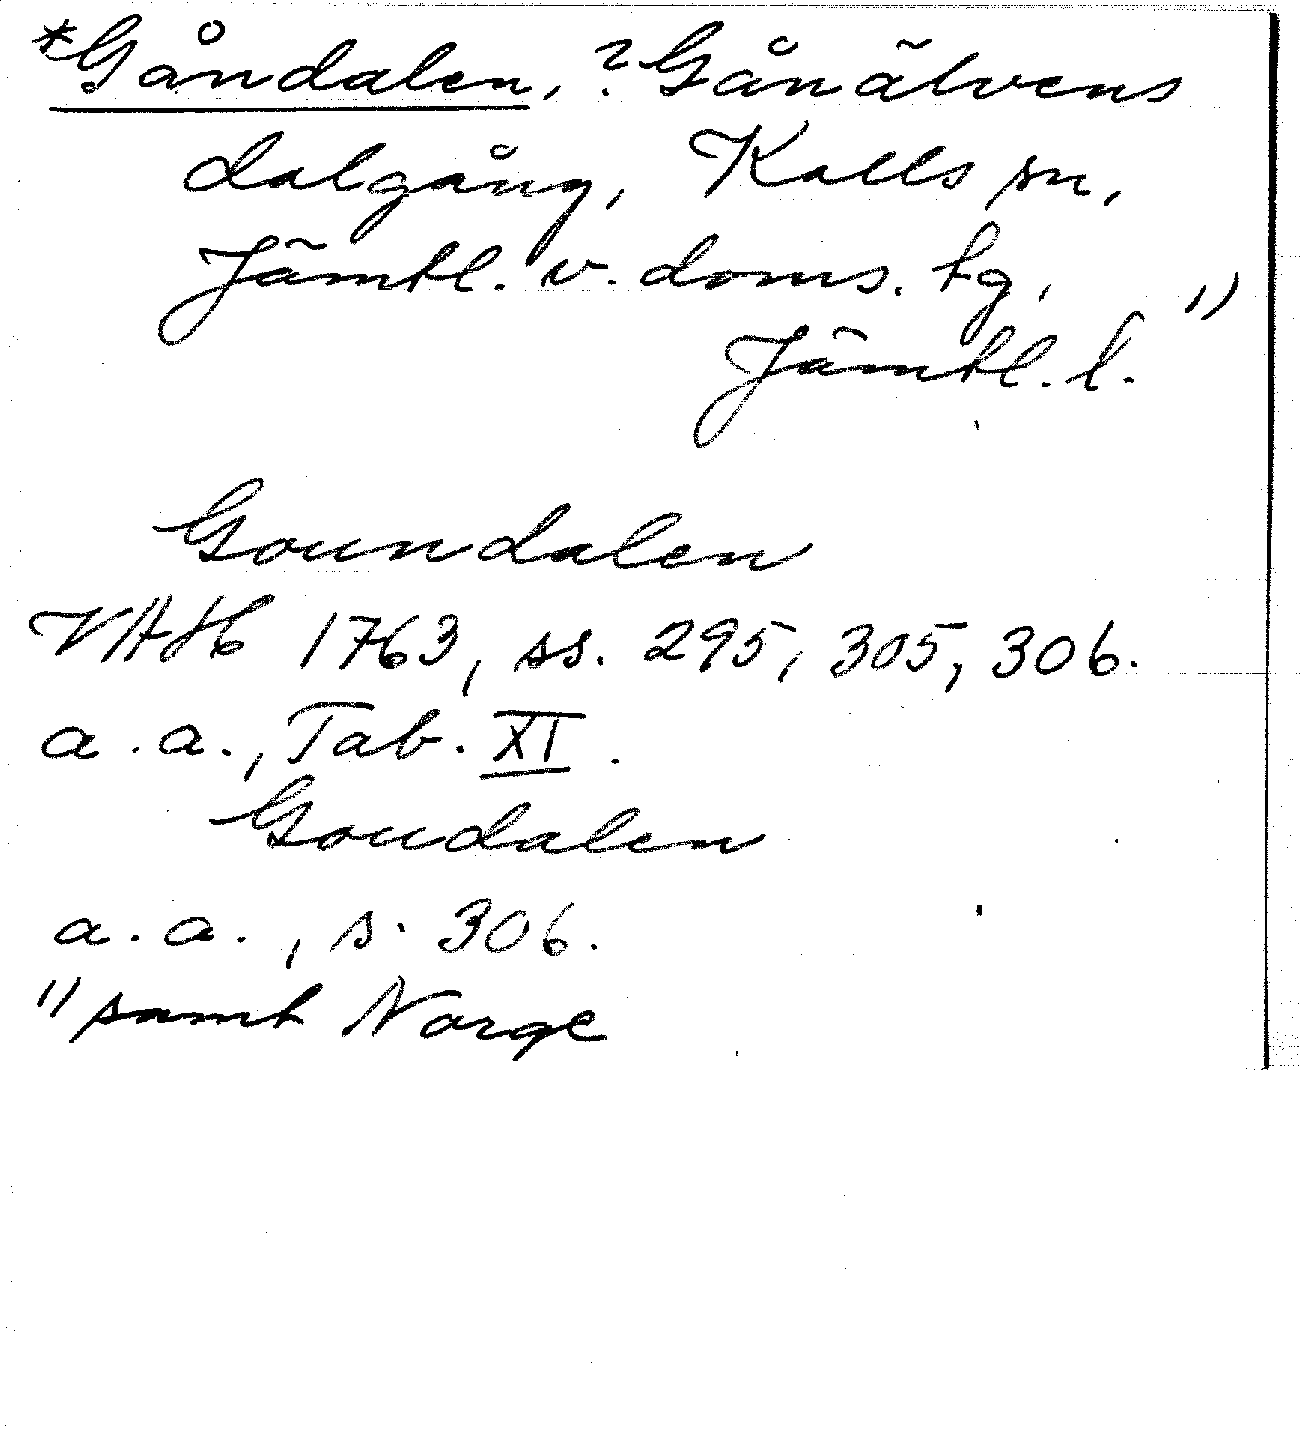 *Gåndalen, ?Gånälvens
dalgång, Kalls sn,
Jämtl. v. doms. tg, 1)
Jämtl. l.
Goundalen
VAH 1763, ss. 295, 305, 306.
a.a., Tab. XI.
Goudalen
a.a., s. 306.
1) samt Norge